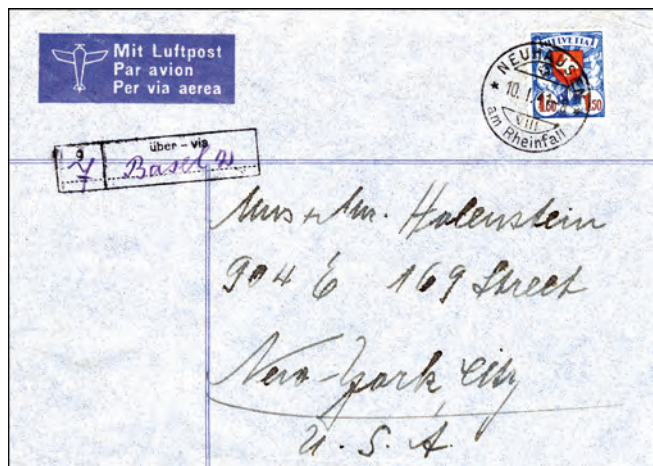 Mit Luftpost
Par avion
Per via aerea
HELVETIA
1.50 1.50
NEUHAUSEN
10.I.41
VIII
am Rheinfall
g
über - via
Basel
Mrs + Mr. Holenstein
904 E 169 Street
New-York City
U. S. A.